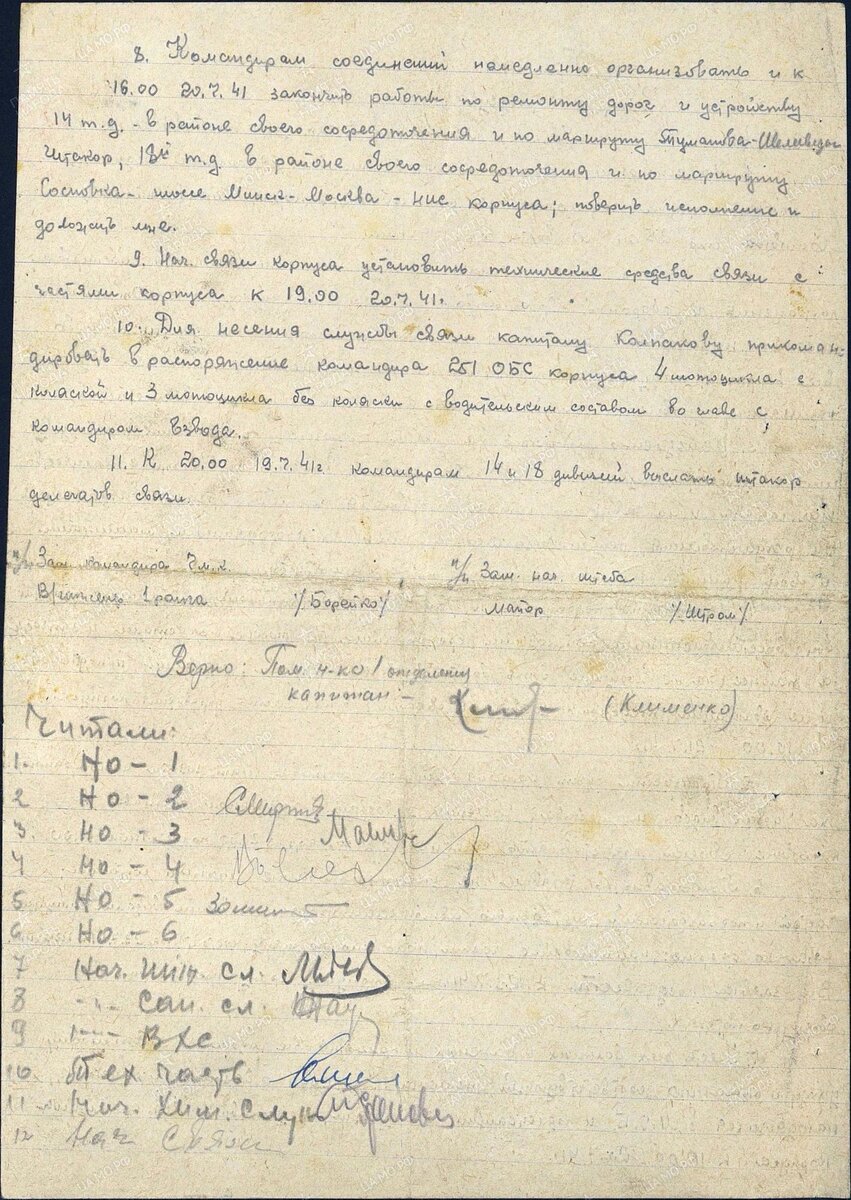 8. Командирам соединений немедленно организовать и к
16.00 20.7.41 закончить работы по ремонту дорог и устройству
14 т.д. - в районе своего сосредоточения и по маршруту Туманова -
штакор, 18й т.д. в районе своего сосредоточения и по маршруту
Сосновка - шоссе Минск - Москва - корпуса; поверить исполнение и
доложить мне.
9. Нач. связи корпуса установить технические средства связи с
частями корпуса к 19.00 20.7.41.
10. Для несения службы связи капитану Колпакову прикоман-
дировать в распоряжение командира 251 ОБС корпуса 4 мотоцикла с
коляской и 3 мотоцикла без коляски с водительским составом во главе с
командиром взвода.
11. К 20.00 19.7.41г. командирам 14 и 18 дивизий выслать штакор
делегатов связи.
п/п Зам. командира 7 м.к. п/п Зам. нач. штаба
В/инженер 1 ранга /Борейко/ Майор /Штром/
Верно: Пом. н-ка 1 отделения
капитан - (Клименко)
Читали:
1. НО - 1
2 НО - 2
3 НО - 3
4 НО - 4
5 НО - 5
6 НО - 6
7 Нач. инж. сл.
8 -"- Сан. сл.
9 -"- ВХС
10 Тех часть
11 Нач. Хим. Служ
12 Нач Связи